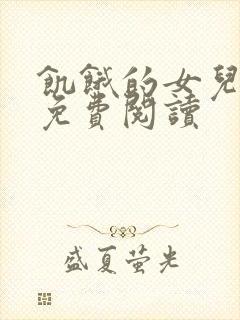 飢餓的女兒
免費閱讀
盛夏萤光